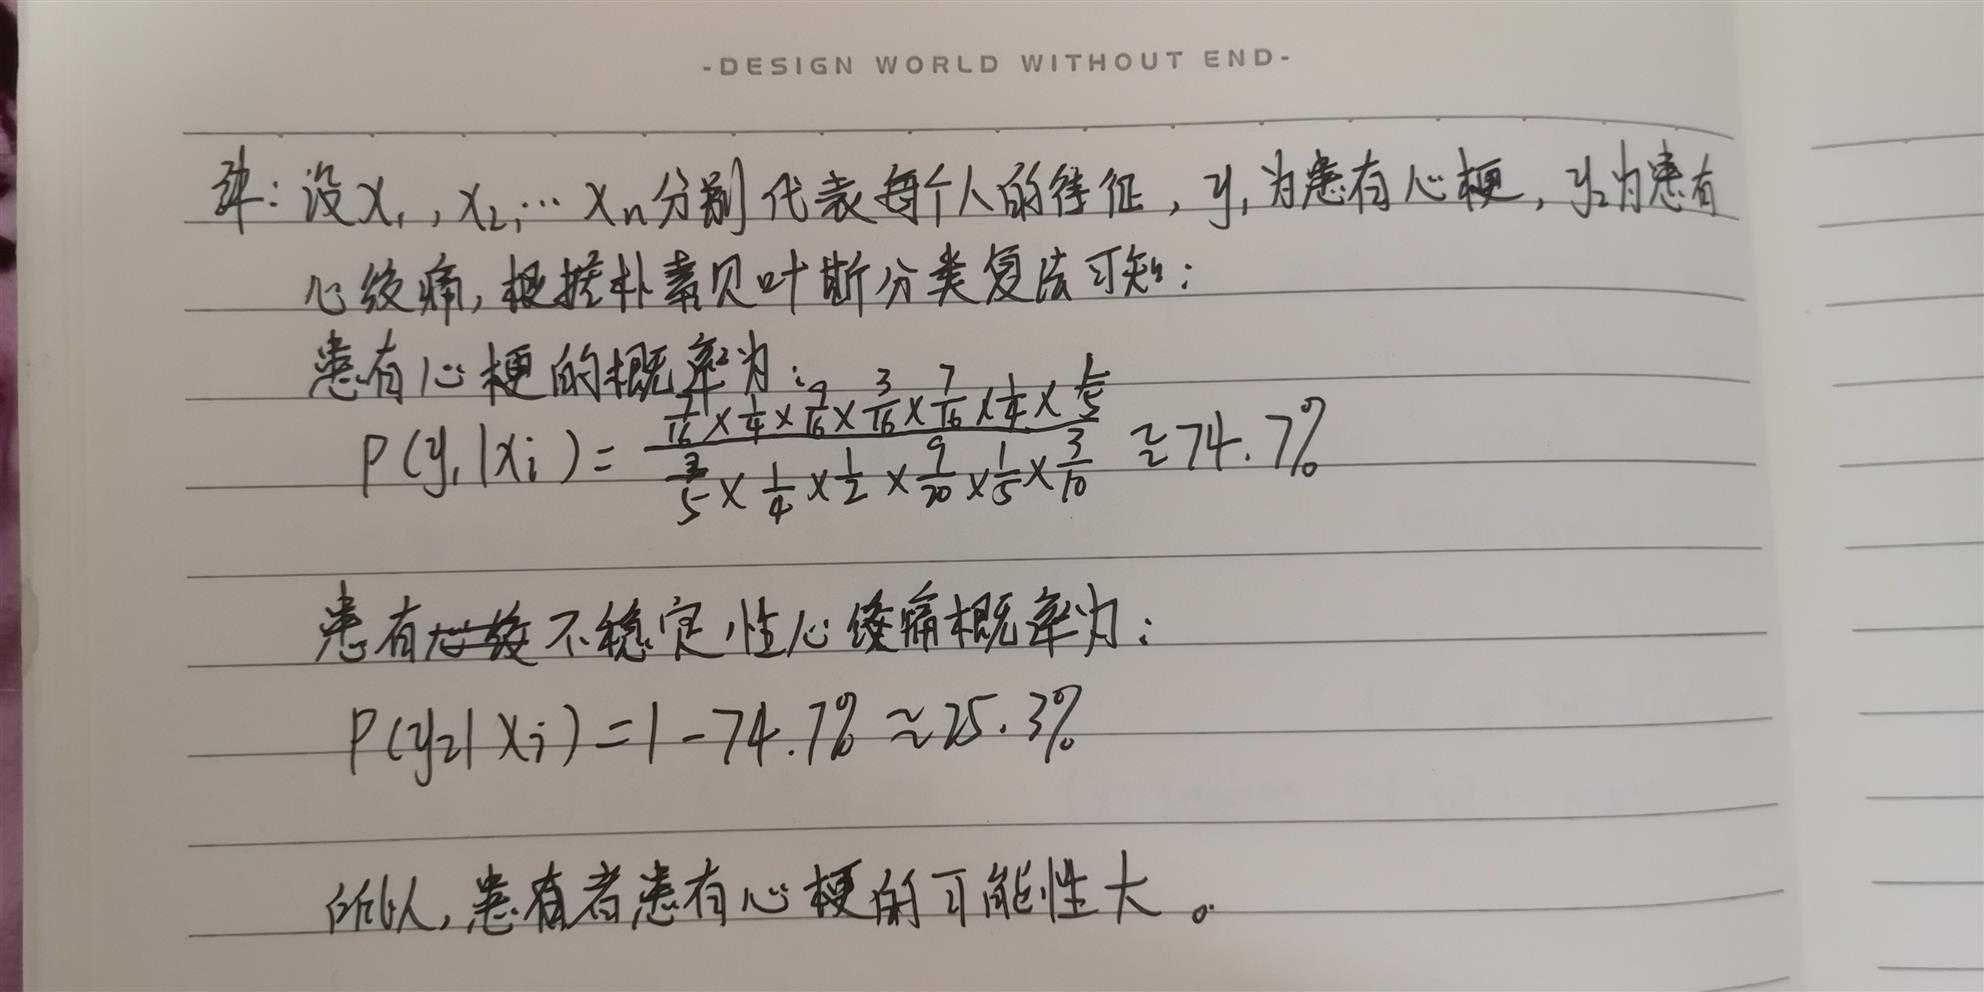 -DESIGN WORLD WITHOUT END-
解:设X₁,X₂,… Xn分别代表每个人的特征,y₁为患有心梗,y₂为患有
心绞痛,根据朴素贝叶斯分类算法可知:
患有心梗的概率为:
P(y₁|Xi)= (7/16 × 1/4 × 9/16 × 3/16 × 7/16 × 1/4 × 4/5) / (3/5 × 1/4 × 1/2 × 9/20 × 1/5 × 3/10) ≈74.7%
患有不稳定性心绞痛概率为:
P(y₂|Xi)=1-74.7%≈25.3%
所以,患有者患有心梗的可能性大。